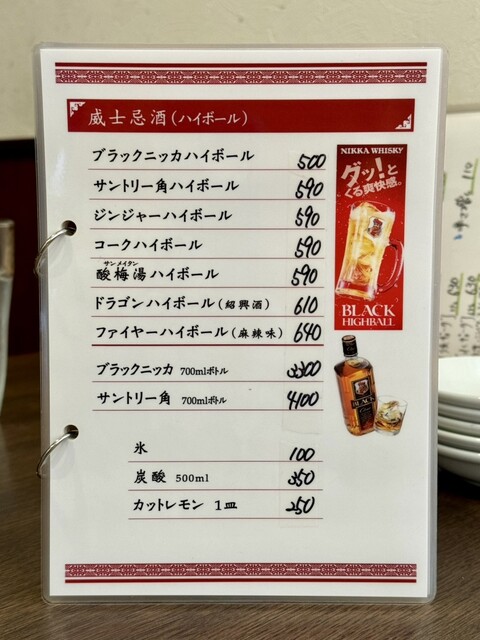 威士忌酒(ハイボール)
ブラックニッカハイボール 500
サントリー角ハイボール 590
ジンジャーハイボール 590
コークハイボール 590
サンメイタン
酸梅湯ハイボール 590
ドラゴンハイボール(紹興酒) 610
ファイヤーハイボール(麻辣味) 640
ブラックニッカ 700mlボトル 3300
サントリー角 700mlボトル 4100
氷 100
炭酸 500ml 350
カットレモン 1皿 250
NIKKA WHISKY
ダッ!と
くる爽快感。
BLACK
HIGHBALL
BLACK